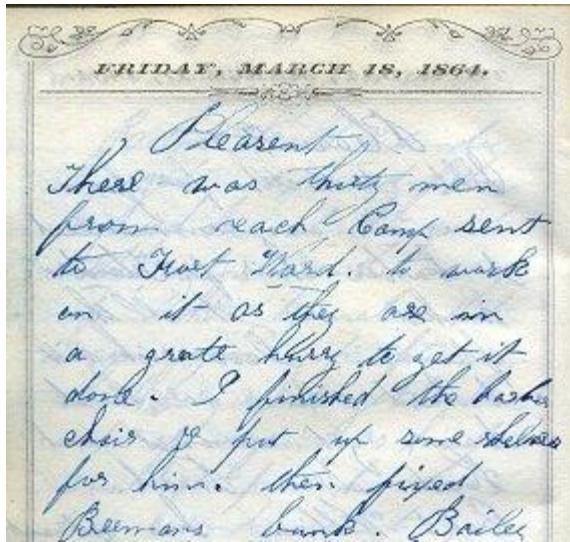 FRIDAY, MARCH 18, 1864.
Pleasent
There was thirty men
from each Camp sent
to Fort Ward. to work
on it as they are in
a grate hurry to get it
done. I finished the barber
chair & put up some shelves
for him. then fixed
Beemans bunk. Bailey